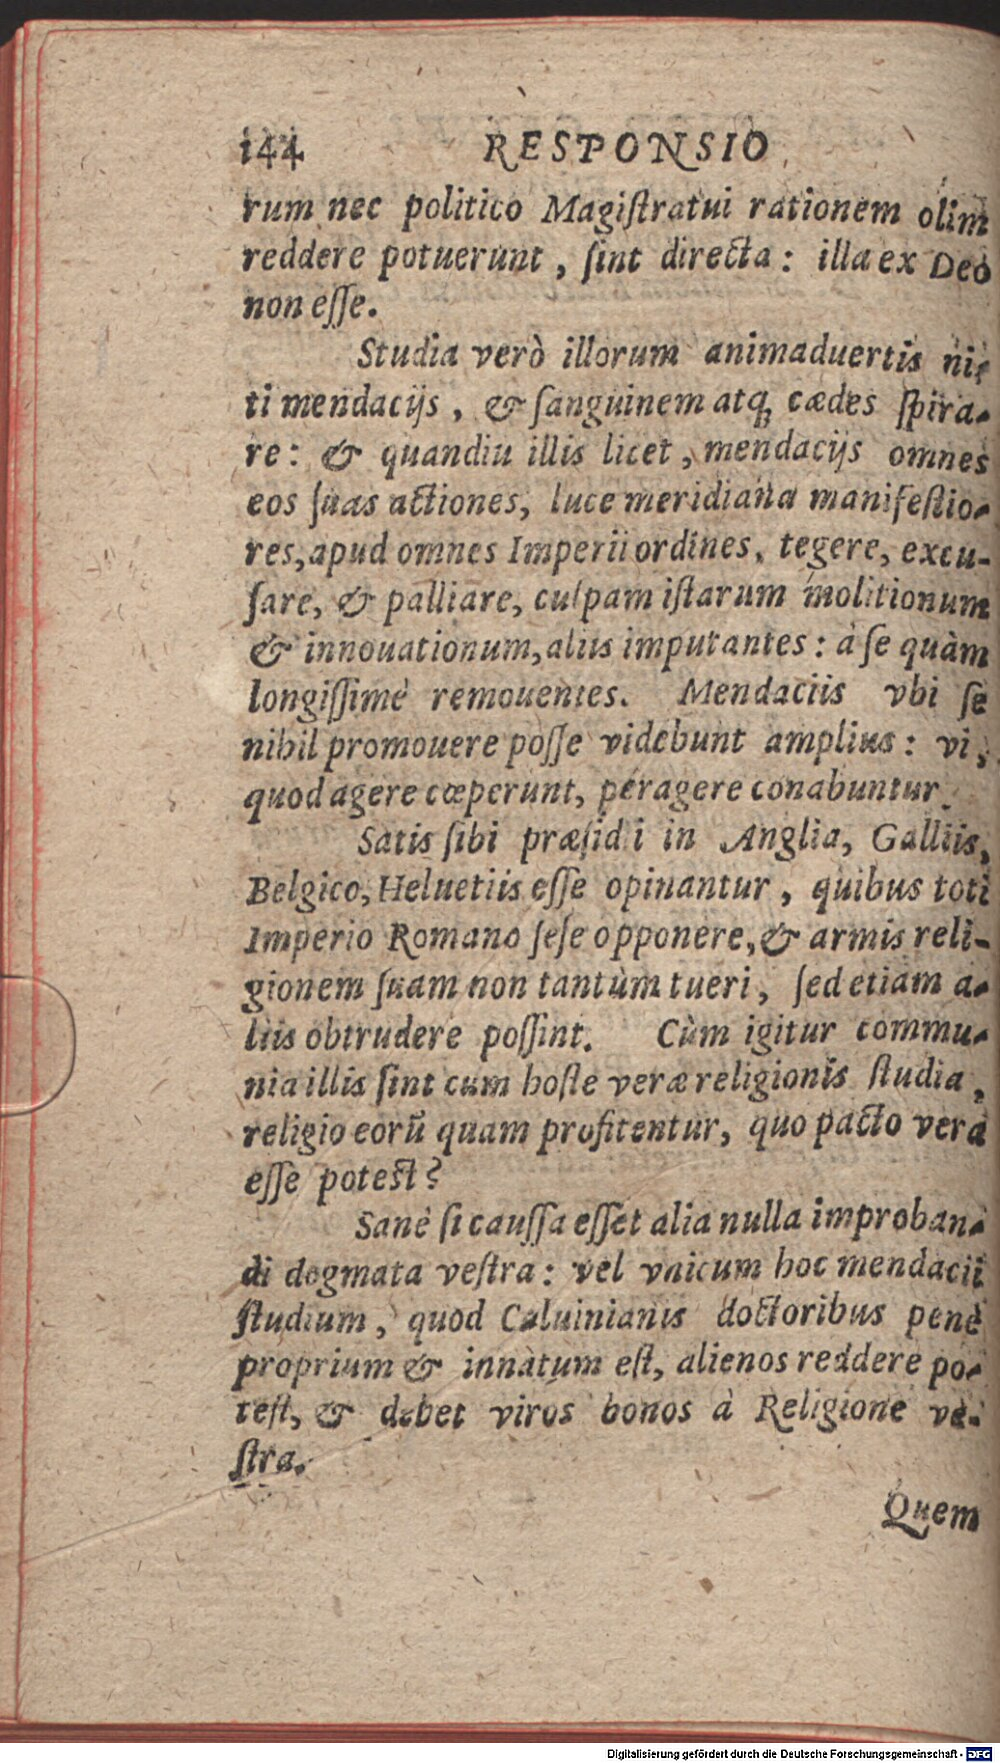 144 RESPONSIO
rum nec politico Magiſtratui rationem olim
reddere potuerunt, ſint directa: illa ex Deo
non eſſe.
Studia verò illorum animaduertis ni-
ti mendacijs, & ſanguinem atq; cædes ſpira-
re: & quandiu illis licet, mendacijs omnes
eos ſuas actiones, luce meridiana manifeſtio-
res, apud omnes Imperii ordines, tegere, excu-
ſare, & palliare, culpam iſtarum molitionum
& innouationum, aliis imputantes: à ſe quàm
longiſſimè remouentes. Mendaciis vbi ſe
nihil promouere poſſe videbunt amplius: vi,
quod agere cœperunt, peragere conabuntur.
Satis ſibi præſidii in Anglia, Galliis,
Belgico, Heluetiis eſſe opinantur, quibus toti
Imperio Romano ſeſe opponere, & armis reli-
gionem ſuam non tantùm tueri, ſed etiam a-
liis obtrudere poſſint. Cùm igitur commu-
nia illis ſint cum hoſte veræ religionis ſtudia,
religio eorũ quam profitentur, quo pacto vera
eſſe poteſt?
Sanè ſi cauſſa eſſet alia nulla improban-
di dogmata veſtra: vel vnicum hoc mendacii
ſtudium, quod Caluinianis doctoribus penè
proprium & innatum eſt, alienos reddere po-
teſt, & debet viros bonos à Religione ve-
ſtra.
Quem
Digitalisierung gefördert durch die Deutsche Forschungsgemeinschaft - DFG